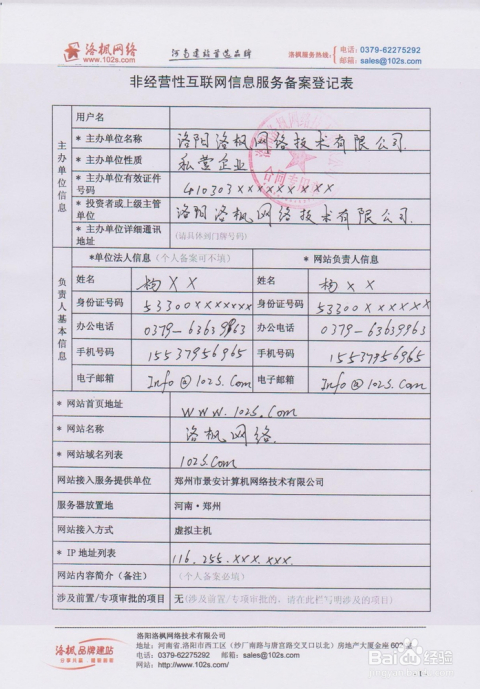 洛枫网络
www.102s.com
河南建站首选品牌
洛枫服务热线:
电话: 0379-62275292
邮箱: sales@102s.com
非经营性互联网信息服务备案登记表
主办单位信息
用户名
* 主办单位名称 洛阳洛枫网络技术有限公司.
* 主办单位性质 私营企业
* 主办单位有效证件号码 410303xxxxxxxxx
* 投资者或上级主管单位 洛阳洛枫网络技术有限公司.
* 主办单位详细通讯地址 (请具体到门牌号码)
负责人基本信息
*单位法人信息(个人备案可不填) * 网站负责人信息
姓名 杨XX 姓名 杨XX
身份证号码 53300xxxxxxx 身份证号码 53300xxxxxxx
办公电话 0379-63639863 办公电话 0379-63639863
手机号码 15537956965 手机号码 15537956965
电子邮箱 Info@102S.Com 电子邮箱 Info@102S.Com
* 网站首页地址 www.102S.Com
* 网站名称 洛枫网络.
* 网站域名列表 102S.Com
网站接入服务提供单位 郑州市景安计算机网络技术有限公司
服务器放置地 河南·郑州
网站接入方式 虚拟主机
* IP 地址列表 116.255.xxx.xxx.
网站内容简介(备注) (个人备案必填)
涉及前置/专项审批的项目 无(涉及前置/专项审批的,请在此栏写明涉及的项目)
洛枫品牌建站
洛阳洛枫网络技术有限公司
地址: 河南省,洛阳市西工区(纱厂南路与唐宫路交叉口以北)房地产大厦金座
电话: 0379-62275292 邮箱: sales@102s.com
网站: http://www.102s.com/
Baidu经验